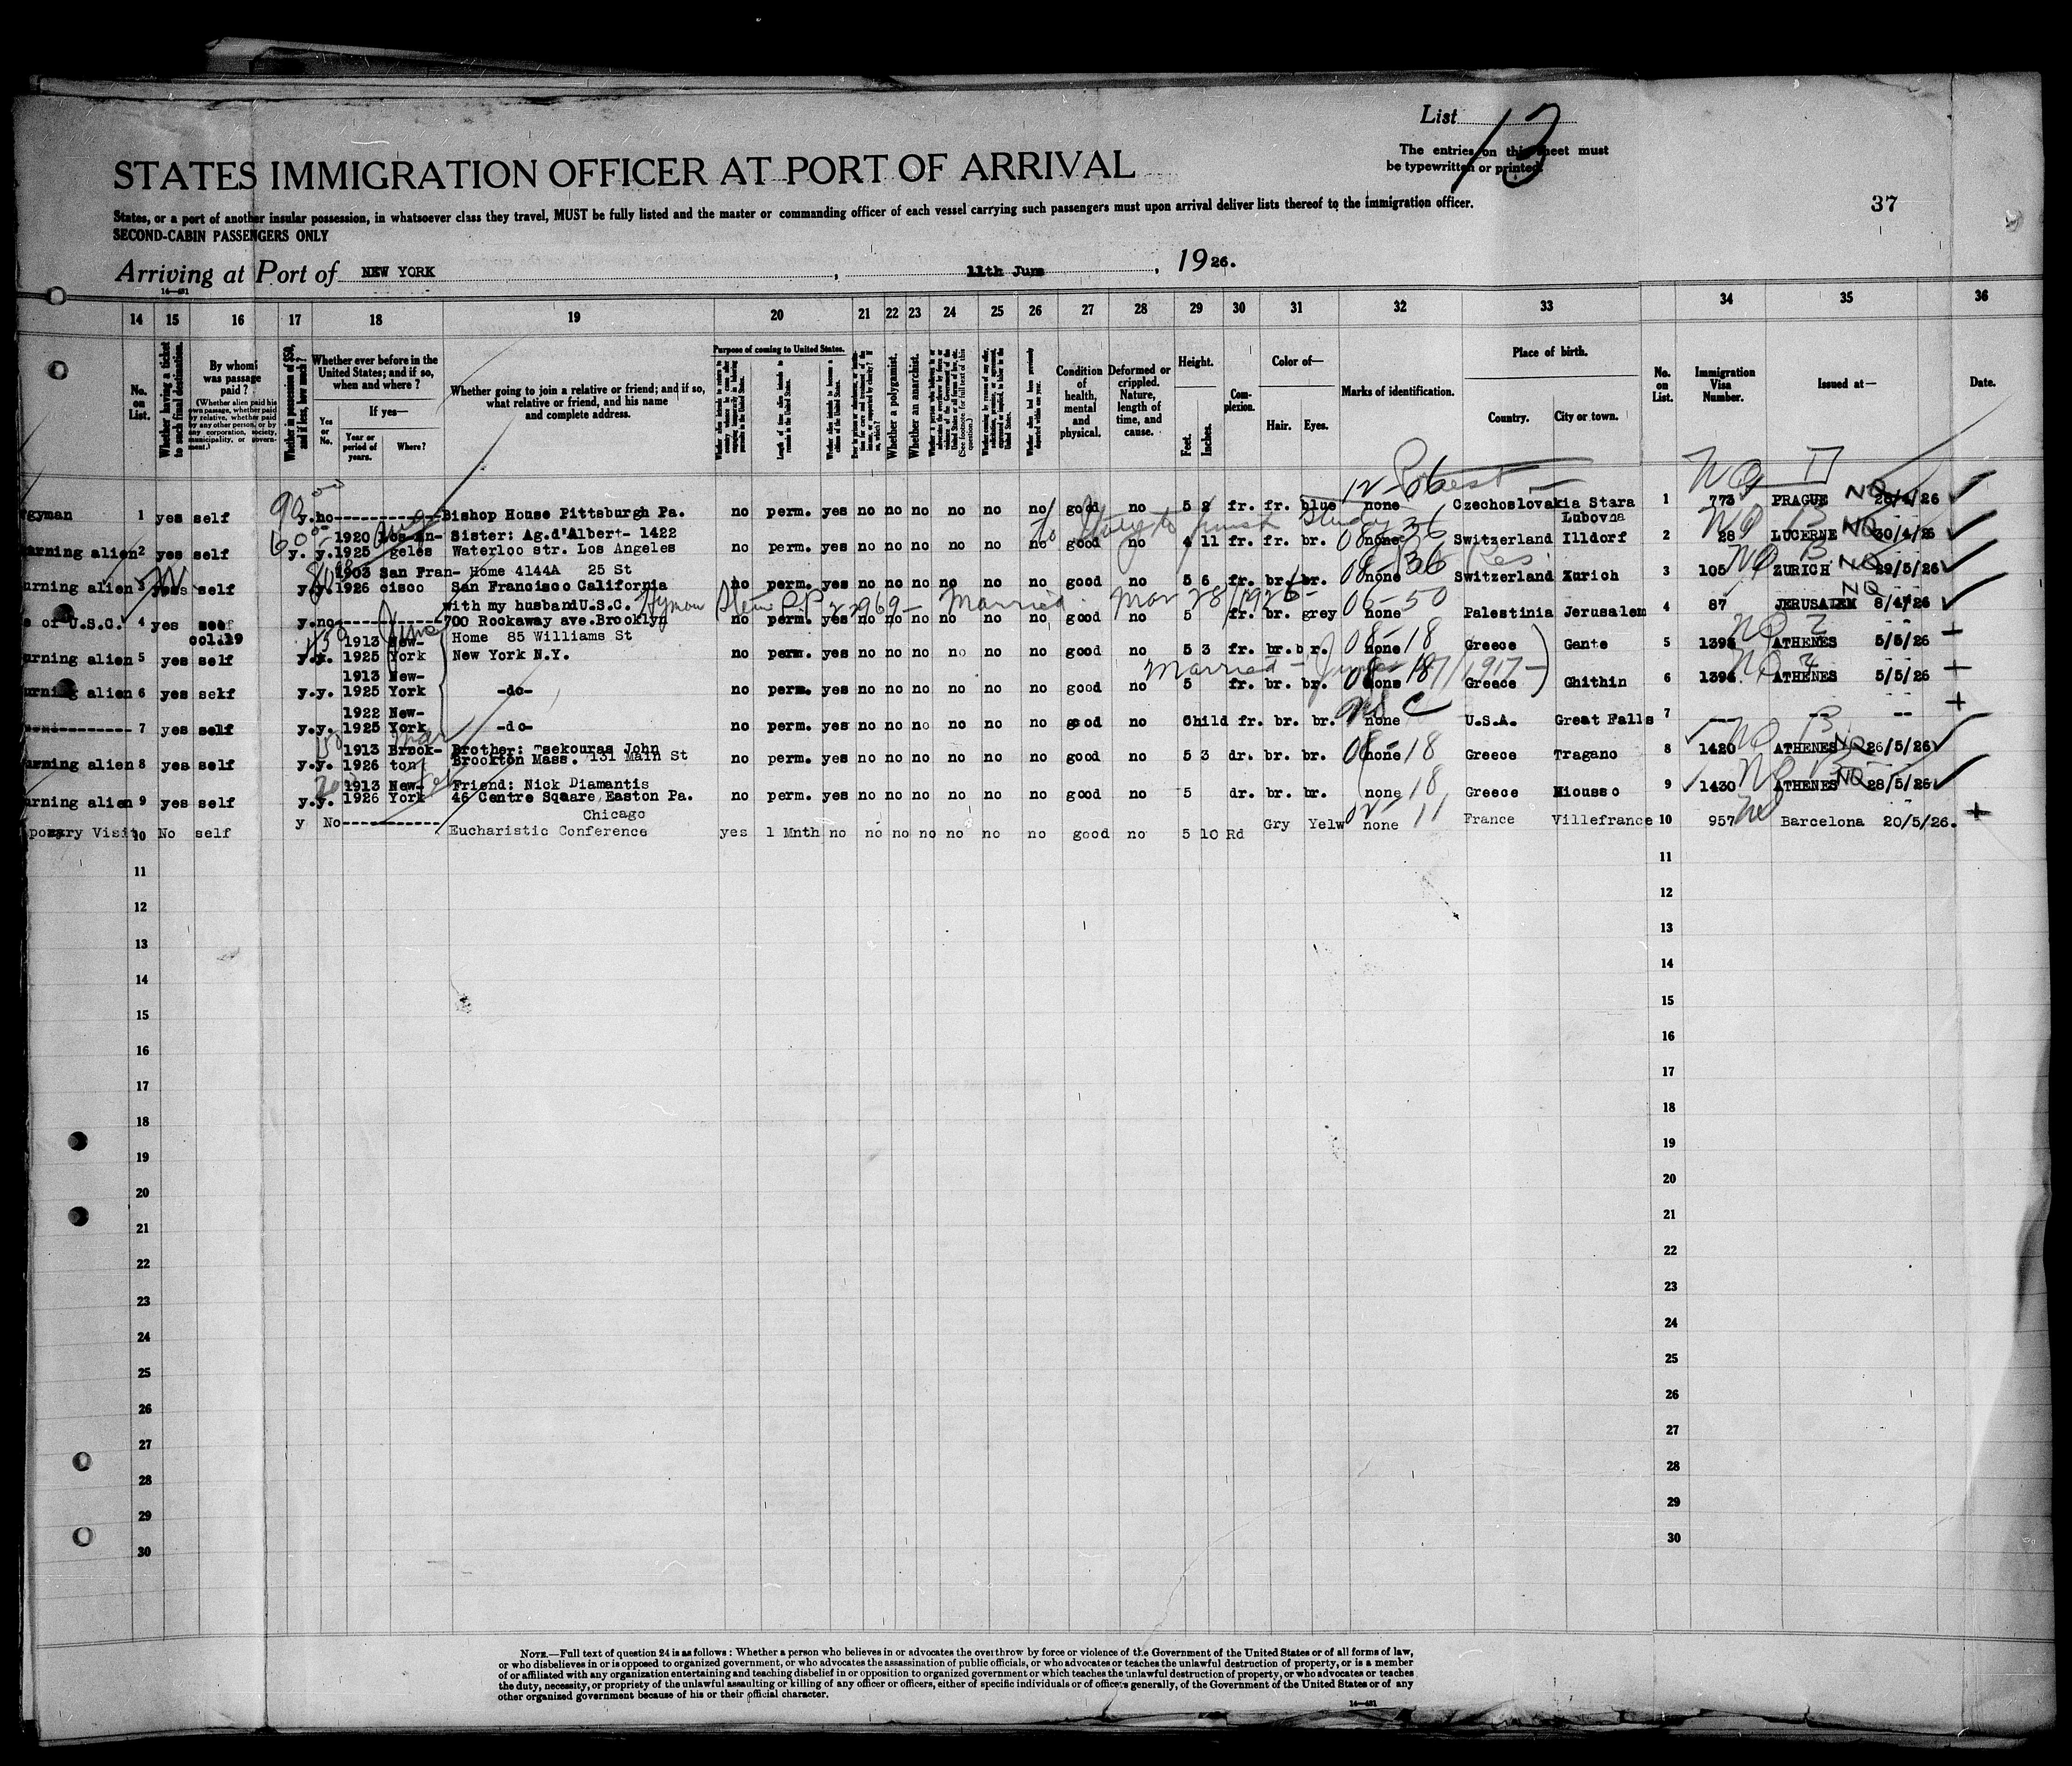 List 13
The entries on this sheet must
be typewritten or printed.
STATES IMMIGRATION OFFICER AT PORT OF ARRIVAL
37
States, or a port of another insular possession, in whatsoever class they travel, MUST be fully listed and the master or commanding officer of each vessel carrying such passengers must upon arrival deliver lists thereof to the immigration officer.
SECOND-CABIN PASSENGERS ONLY
Arriving at Port of NEW YORK , 11th June , 1926.
14 15 16 17 18 19 20 21 22 23 24 25 26 27 28 29 30 31 32 33 34 35 36
No. on List.
Whether having a ticket to such final destination.
By whom was passage paid?
(Whether alien paid his own passage, whether paid by relative, whether paid by any other person, or by any corporation, society, municipality, or government.)
Whether in possession of $50, and if less, how much?
Whether ever before in the United States; and if so, when and where?
Yes or No.
If yes—
Year or period of years.
Where?
Whether going to join a relative or friend; and if so, what relative or friend, and his name and complete address.
Purpose of coming to United States.
Length of time alien intends to remain in the United States.
Whether a polygamist.
Whether an anarchist.
Condition of health, mental and physical.
Deformed or crippled. Nature, length of time, and cause.
Height.
Feet. Inches.
Complexion.
Color of—
Hair. Eyes.
Marks of identification.
Place of birth.
Country. City or town.
No. on List.
Immigration Visa Number.
Issued at—
Date.
12-06 Priest
gyman 1 yes self 90 y. no Bishop House Pittsburgh Pa. no perm. yes no no no no no no good no 5 8 fr. fr. blue none Czechoslovakia Stara Lubovna 1 773 PRAGUE NQ 28/4/26
rning alien 2 yes self 600 y. y. 1920 1925 Los An-geles Sister: Ag.d'Albert- 1422 Waterloo str. Los Angeles no perm. yes no no no no no no good no 4 11 fr. fr. br. none Switzerland Illdorf 2 28 LUCERNE NQ 30/4/26
urning alien 3 yes self y. y. 1903 1926 San Fran-cisco Home 4144A 25 St San Francisco California no perm. yes no no no no no no good no 5 6 fr. br. br. none 08-36 Switzerland Zurich 3 105 ZURICH NQ 29/5/26
Hyman Stein Married Mar 28/1926- 06-50
e of U.S.C. 4 yes self y. no with my husband U.S.C. 700 Rockaway ave. Brooklyn no perm. yes no no no no no no good no 5 fr. br. grey none Palestinia Jerusalem 4 87 JERUSALEM NQ 8/4/26
urning alien 5 yes self y. y. 1913 1925 New-York Home 85 Williams St New York N.Y. no perm. yes no no no no no no good no 5 3 fr. br. br. none 08-18 Greece Gante 5 1395 ATHENES 5/5/26
Married - June 17/1917-
urning alien 6 yes self y. y. 1913 1925 New-York -do- no perm. yes no no no no no no good no 5 fr. br. br. none Greece Ghithin 6 1396 ATHENES 5/5/26
7 yes self y. y. 1922 1925 New-York -do- no perm. yes no no no no no no good no Child fr. br. br. none U.S.A. Great Falls 7 -- -- --
urning alien 8 yes self y. y. 1913 1926 Brock-ton Brother: Tsekouras John Brockton Mass. 131 Main St no perm. yes no no no no no no good no 5 3 dr. br. br. none 08-18 Greece Tragano 8 1420 ATHENES NQ 26/5/26
urning alien 9 yes self y. y. 1913 1926 New-York Friend: Nick Diamantis 46 Centre Square, Easton Pa. no perm. yes no no no no no no good no 5 dr. br. br. none 18 Greece Miousso 9 1430 ATHENES NQ 28/5/26
porary Visit 10 No self y No Chicago Eucharistic Conference yes 1 Mnth no no no no no no no good no 5 10 Rd Gry Yelw none 02-11 France Villefrance 10 957 Barcelona 20/5/26.
11 11
12 12
13 13
14 14
15 15
16 16
17 17
18 18
19 19
20 20
21 21
22 22
23 23
24 24
25 25
26 26
27 27
28 28
29 29
30 30
NOTE.—Full text of question 24 is as follows: Whether a person who believes in or advocates the overthrow by force or violence of the Government of the United States or of all forms of law,
or who disbelieves in or is opposed to organized government, or who advocates the assassination of public officials, or who advocates or teaches the unlawful destruction of property, or is a member
of or affiliated with any organization entertaining and teaching disbelief in or opposition to organized government or which teaches the unlawful destruction of property, or who advocates or teaches
the duty, necessity, or propriety of the unlawful assaulting or killing of any officer or officers, either of specific individuals or of officers generally, of the Government of the United States or of any
other organized government because of his or their official character.
14—431